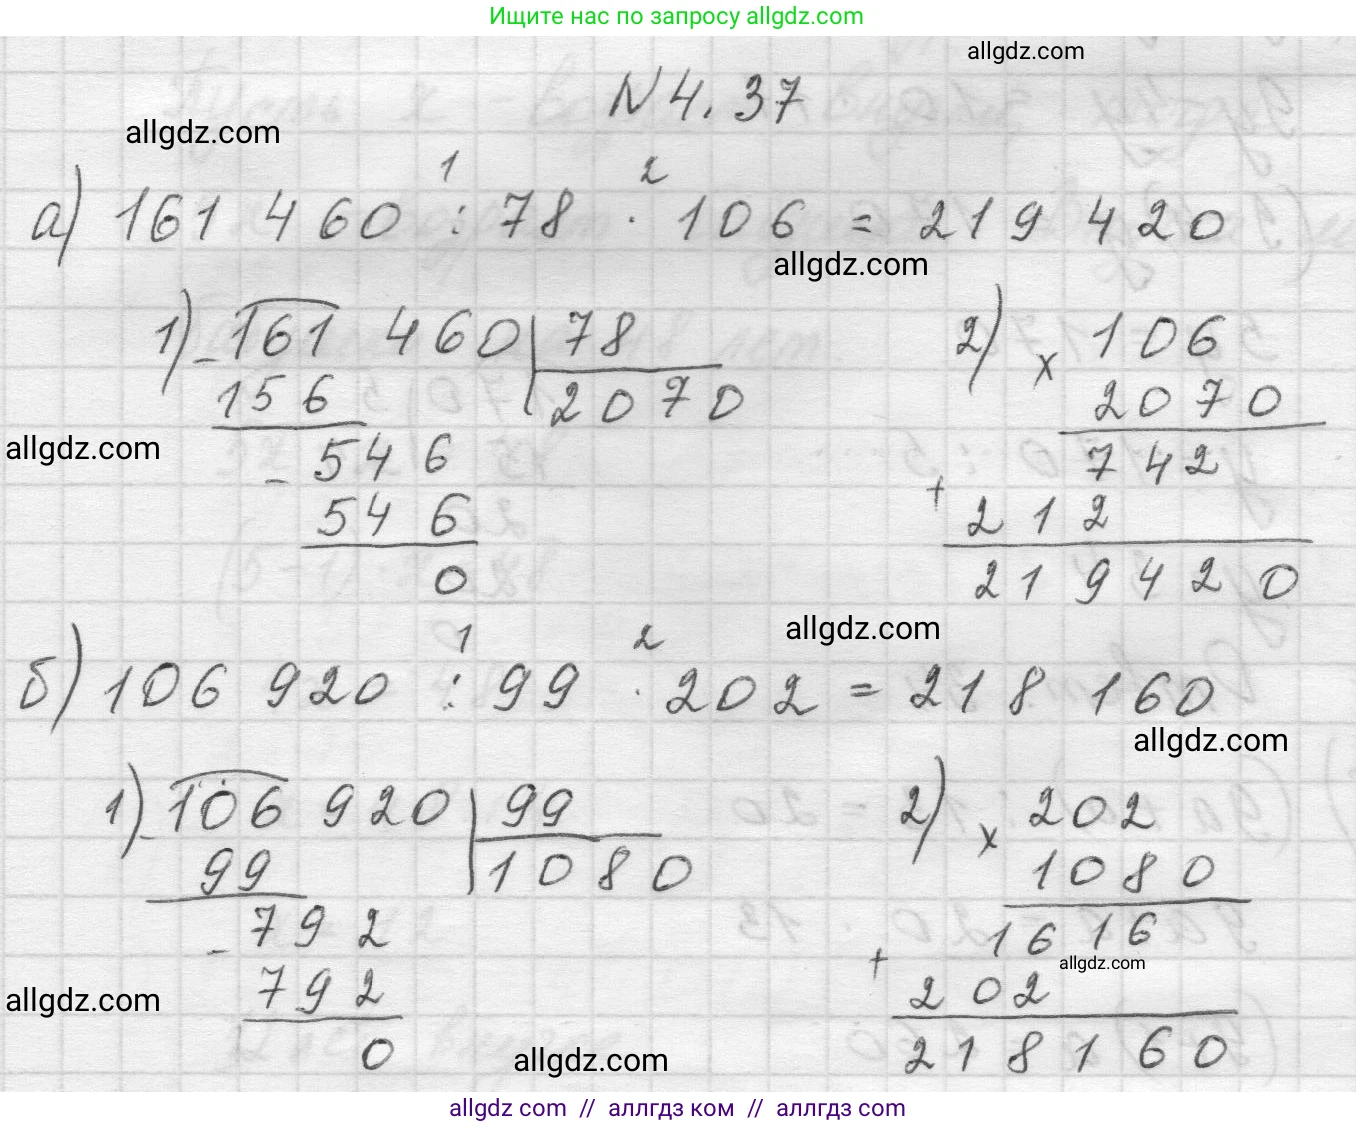 Ищите нас по запросу allgdz.com
allgdz.com
N 4.37
allgdz.com
1 2
а) 161 460 : 78 · 106 = 219 420
allgdz.com
1) - 161 460 | 78
156 2070
- 546
546
0
2) x 106
2070
742
+ 212
219420
allgdz.com
allgdz.com
1 2
б) 106 920 : 99 · 202 = 218 160
allgdz.com
1) - 106 920 | 99
99 1080
- 792
792
0
2) x 202
1080
1616
allgdz.com
+ 202
218160
allgdz.com
allgdz.com
allgdz com // аллгдз ком // аллгдз com